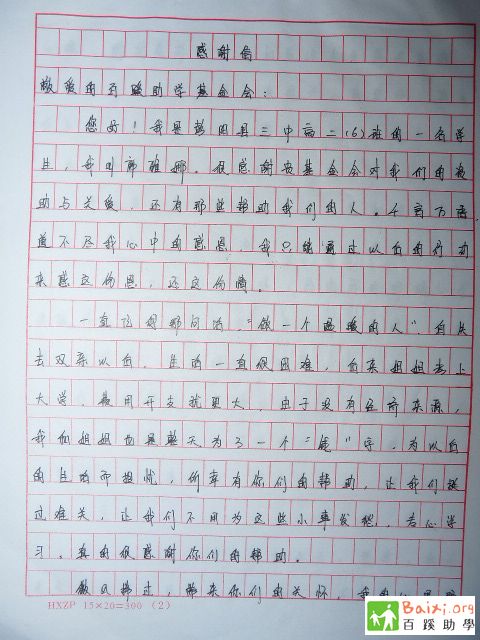 感谢信
敬爱的百蹊助学基金会：
您好！我是蓝田县三中高二(6)班的一名学
生，我叫雅娜。很感谢贵基金会对我们的救
助与关爱，还有那些帮助我们的人。千言万语
道不尽我心中的感恩，我只能通过以后的行动
来感这份恩，还这份情。
一直记得那句话，“做一个温暖的人”。自失
去双亲以后，生活一直很困难，后来姐姐考上
大学，费用开支就更大，由于没有经济来源，
我和姐姐也是整天为了一个“钱”字，为以后
的生活而担忧，所幸有你们的帮助，让我们
过难关，让我们不用为这些小事发愁，专心学
习。真的很感谢你们的帮助。
微风拂过，带来你们的关怀，我
HXZP 15×20=300 (2)
Baixi.org
百蹊助學